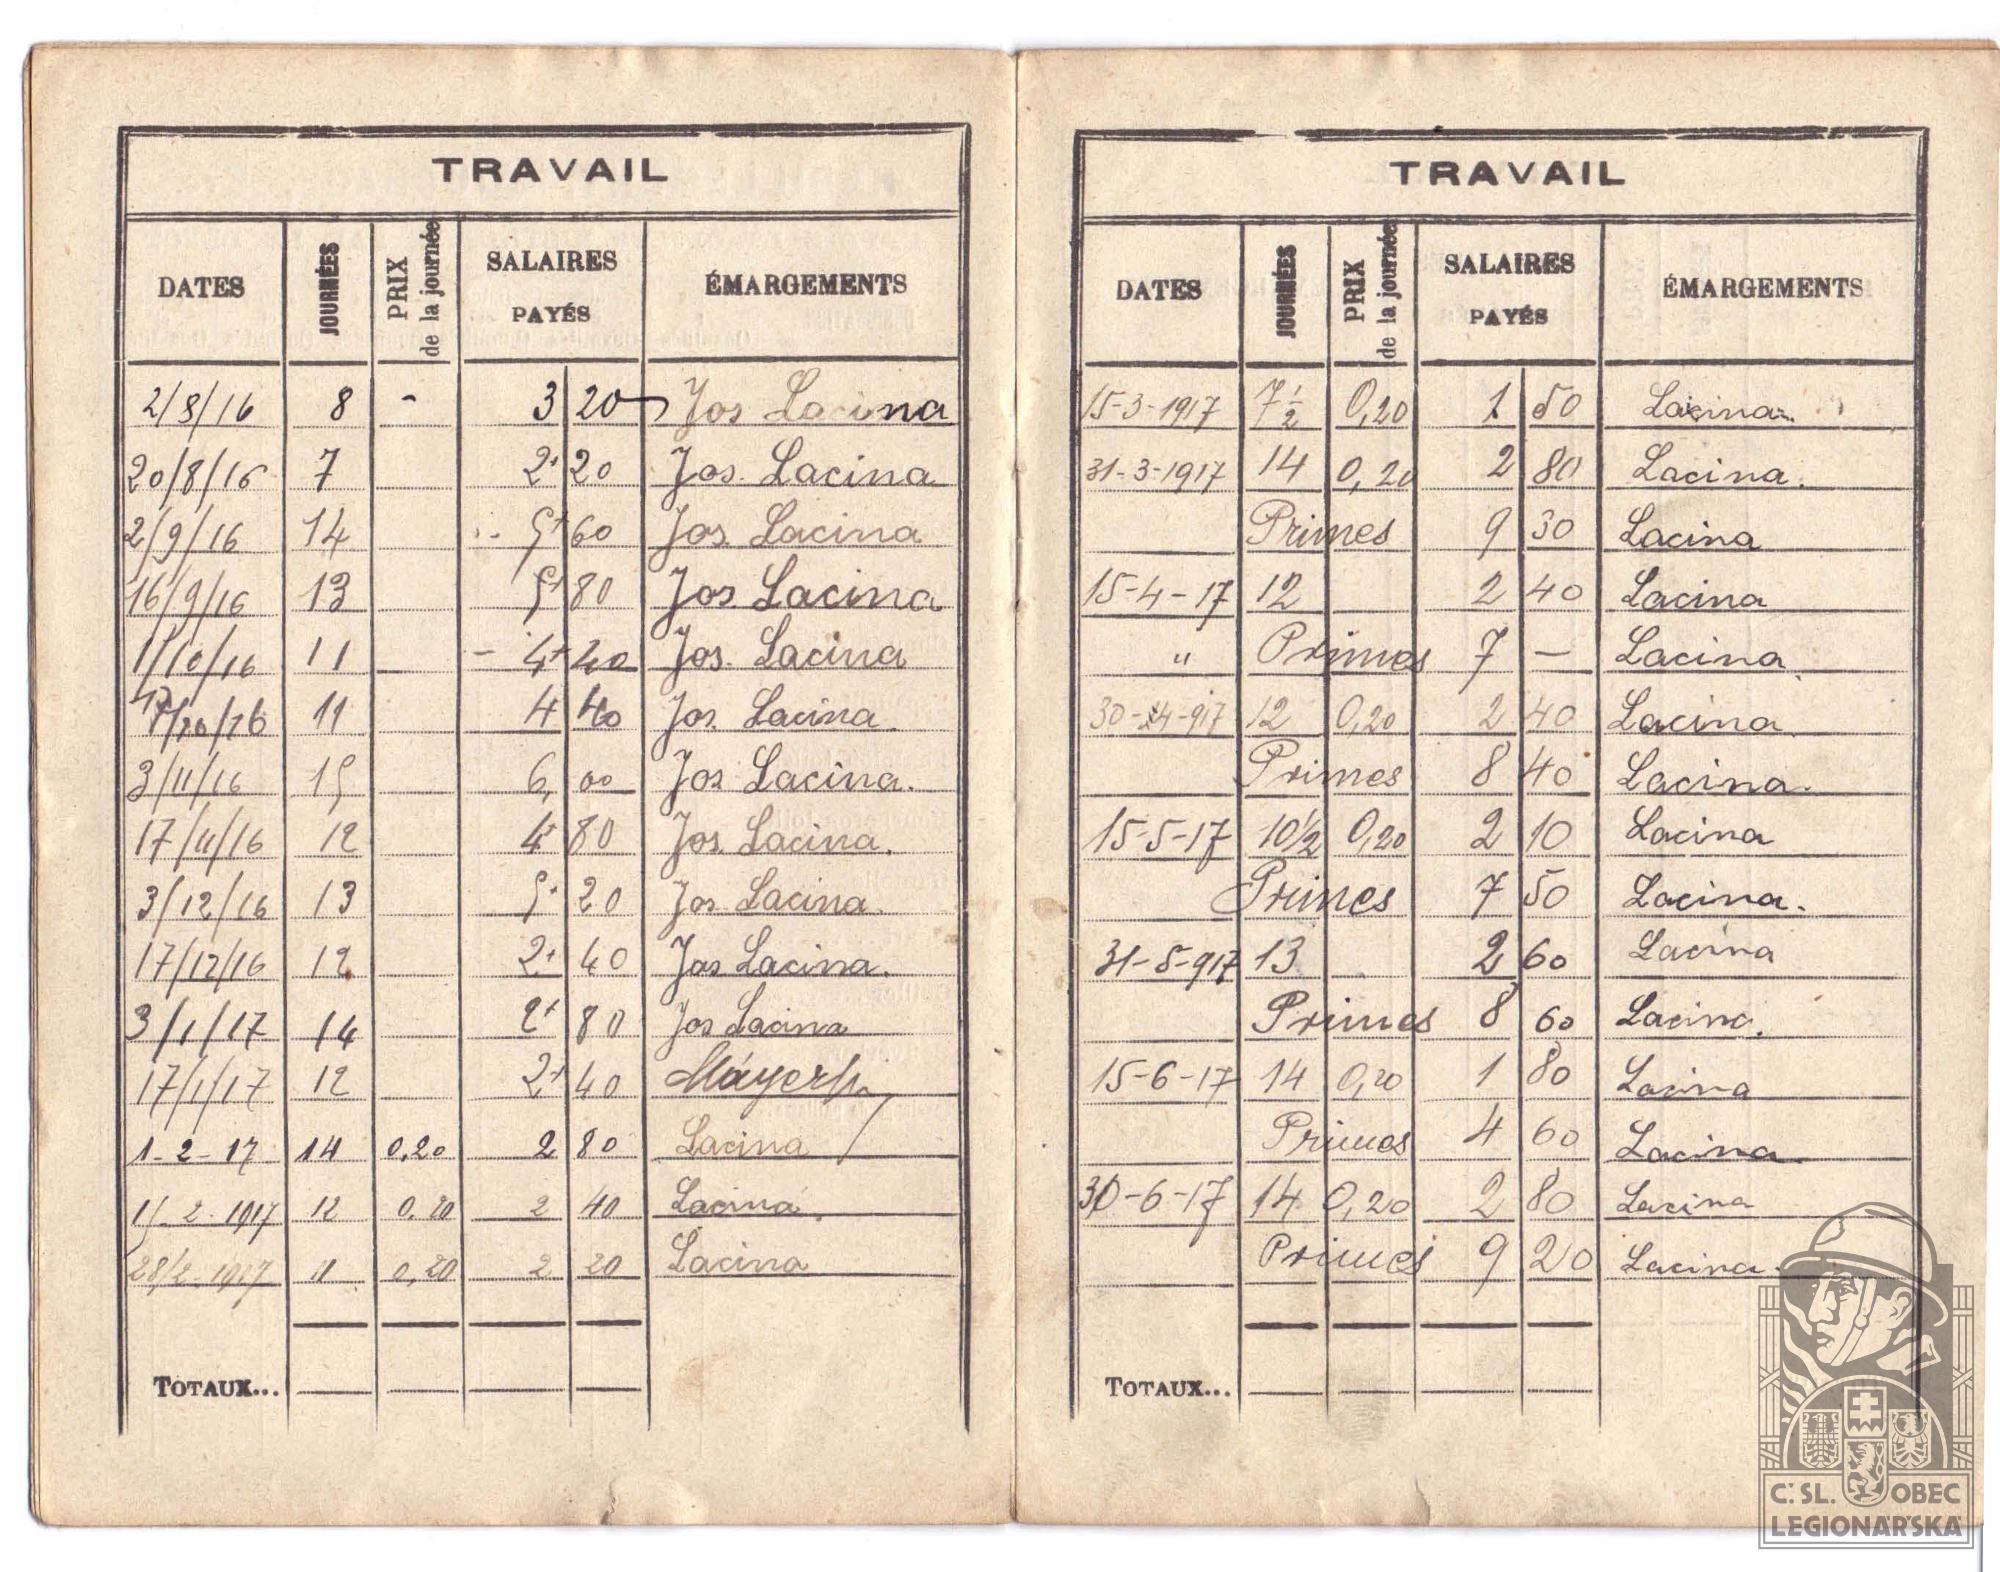 TRAVAIL
DATES JOURNÉES PRIX de la journée SALAIRES PAYÉS ÉMARGEMENTS
2/8/16 8 - 3 20 Jos Lacina
20/8/16 7 2 20 Jos. Lacina
2/9/16 14 5 60 Jos. Lacina
16/9/16 13 5 80 Jos. Lacina
1/10/16 11 4 40 Jos. Lacina
11 4 40 Jos. Lacina.
3/11/16 15 6, 00 Jos Lacina.
17/11/16 12 4 80 Jos. Lacina.
3/12/16 13 5 20 Jos. Lacina.
17/12/16 12 2 40 Jos Lacina.
3/1/17 14 2 80 Jos Lacina
17/1/17 12 2 40
1-2-17 14 0,20 2 80 Lacina
15-2-1917 12 0,20 2 40 Lacina.
28/2-1917 11 0,20 2 20 Lacina
TOTAUX...
TRAVAIL
DATES JOURNÉES PRIX de la journée SALAIRES PAYÉS ÉMARGEMENTS
15-3-1917 7 1/2 0,20 1 50 Lacina.
31-3-1917 14 0,20 2 80 Lacina.
Primes 9 30 Lacina
15-4-17 12 2 40 Lacina
" Primes 7 — Lacina
30-4-917 12 0,20 2 40 Lacina.
Primes 8 40 Lacina.
15-5-17 10 1/2 0,20 2 10 Lacina
Primes 7 50 Lacina.
31-5-917 13 2 60 Lacina
Primes 8 60 Lacina.
15-6-17 14 0,20 1 80 Lacina
Primes 4 60 Lacina.
30-6-17 14 0,20 2 80 Lacina
Primes 9 20 Lacina.
TOTAUX...
Č. SL. OBEC
LEGIONÁŘSKÁ